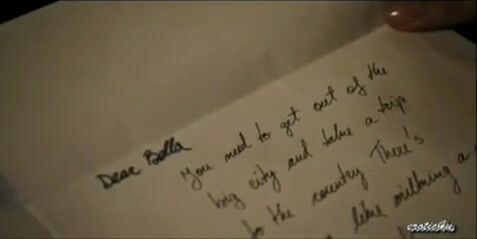 Dear Bella
You need to get out of the
big city and take a trip
to the country. There's
like milking a